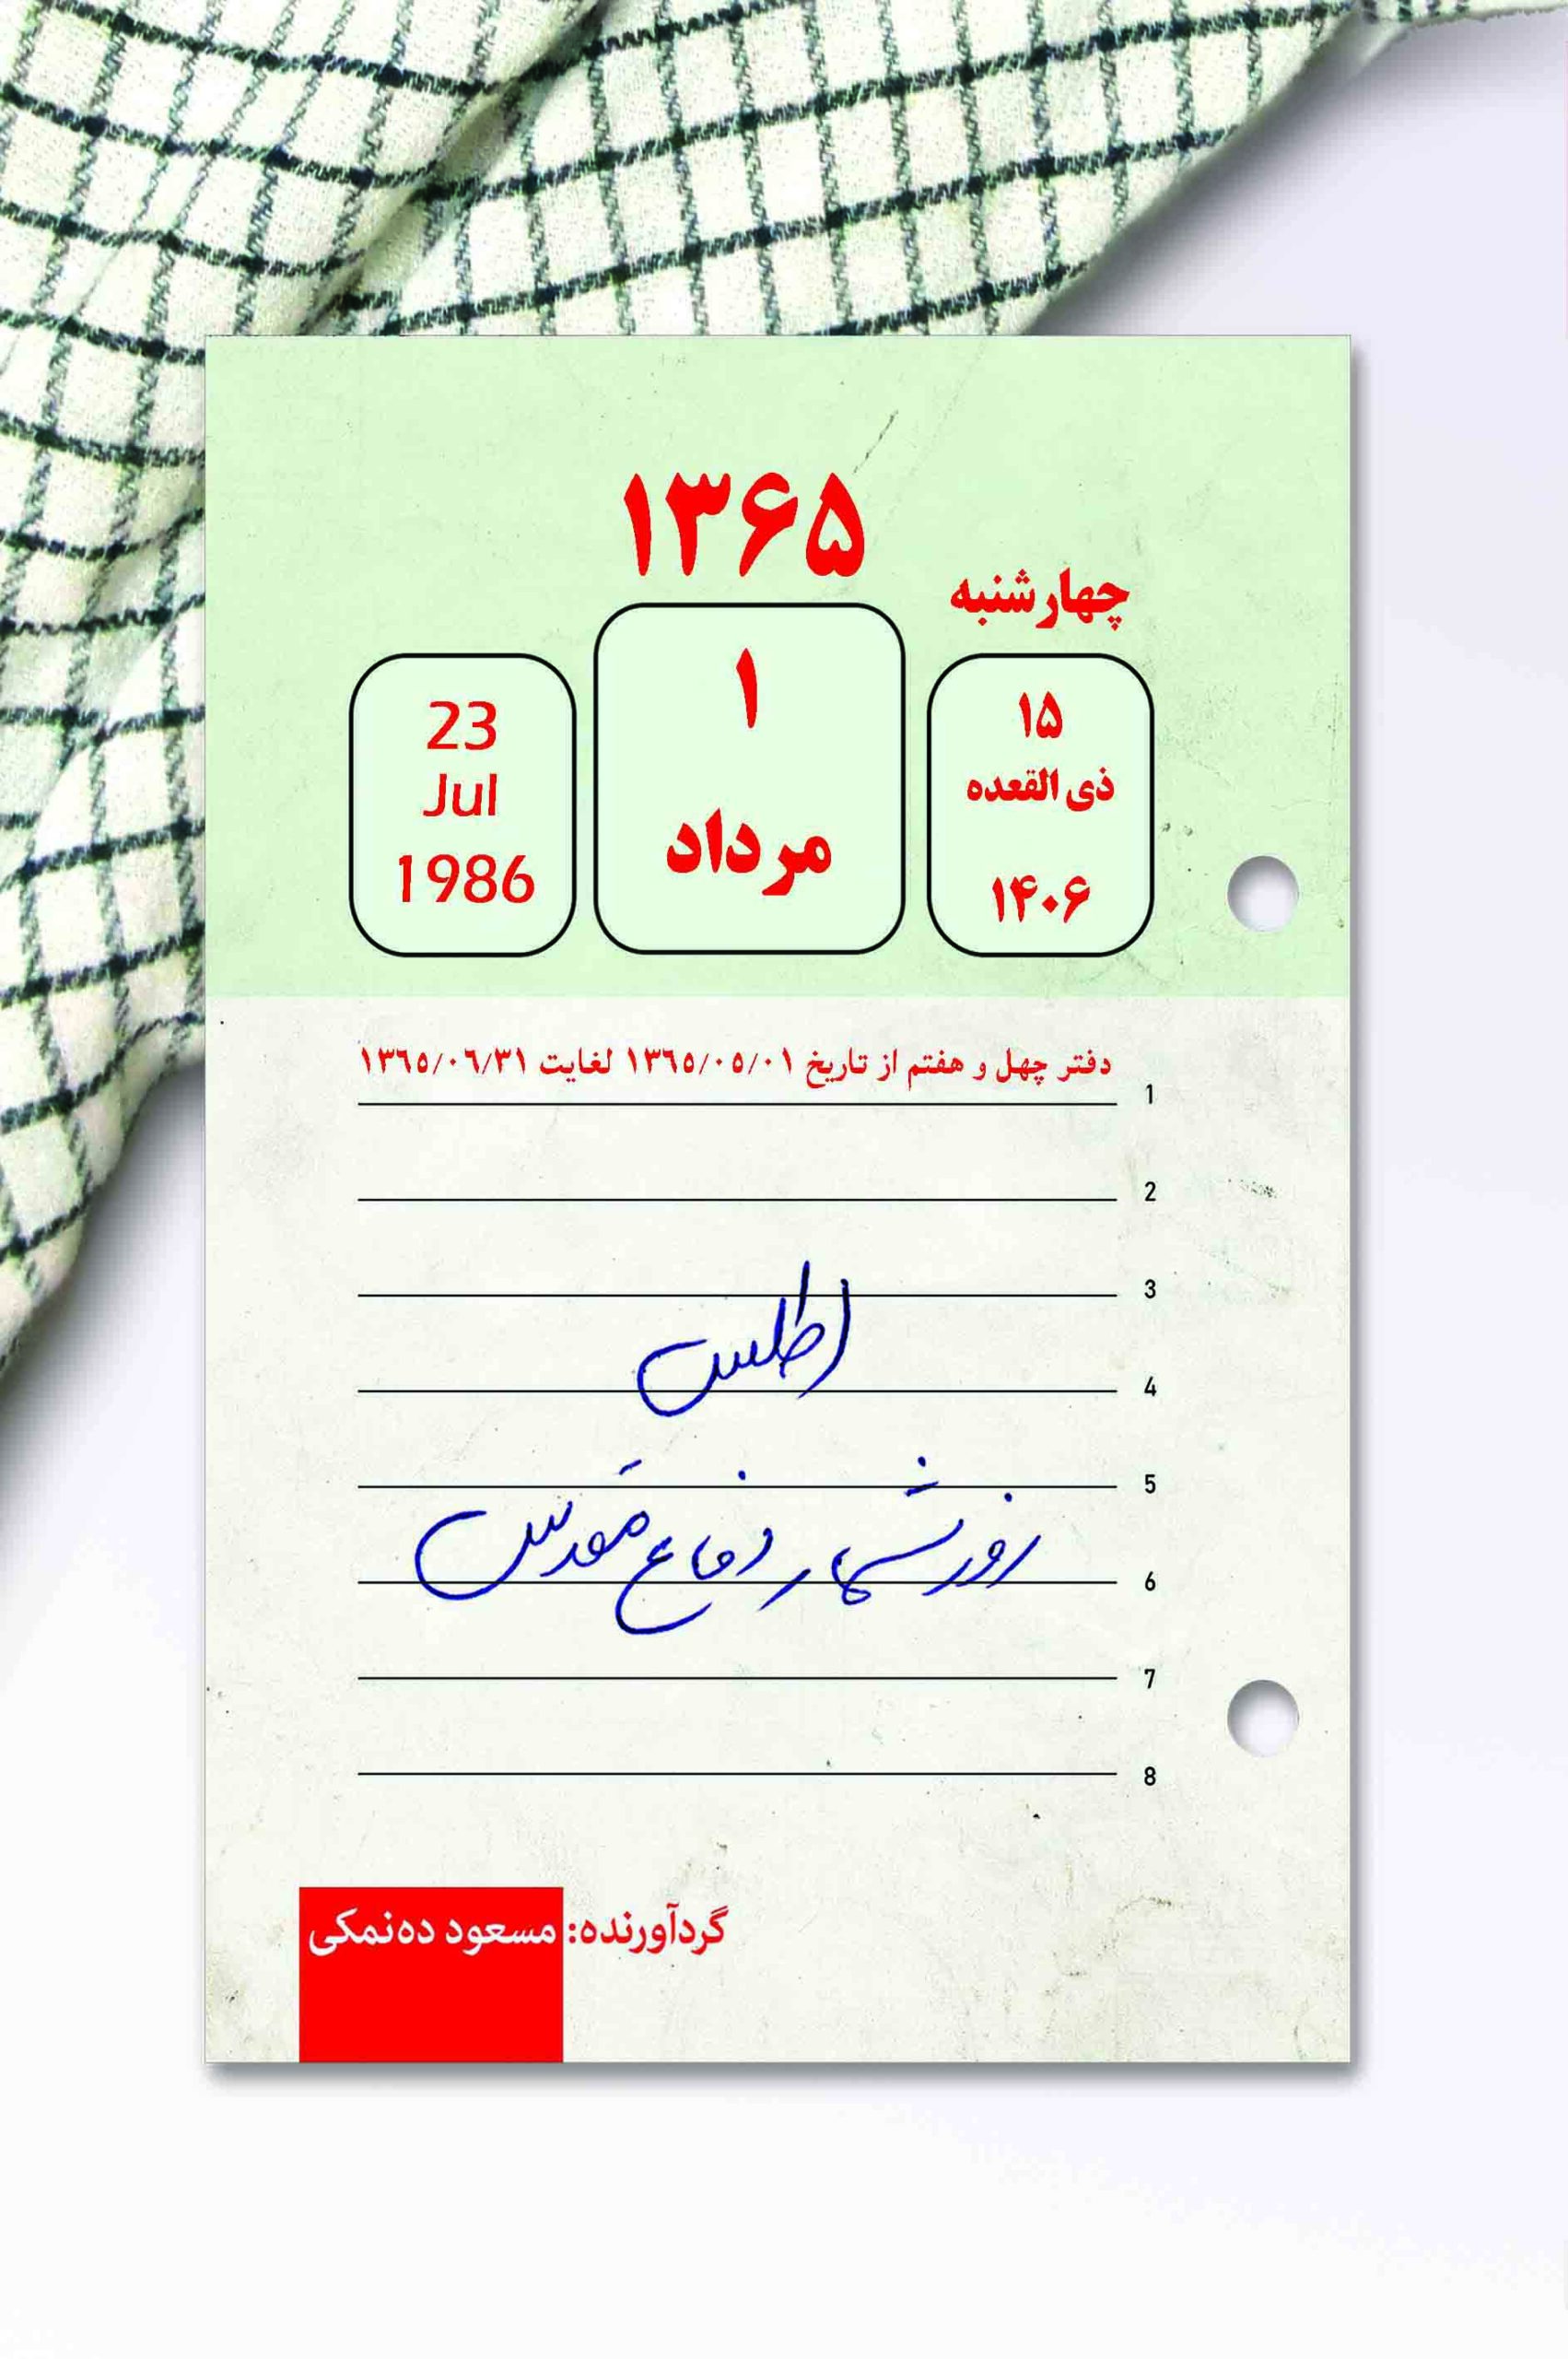 ۱۳۶۵
چهارشنبه
۱۵
ذی القعده
۱۴۰۶
۱
مرداد
23
Jul
1986
دفتر چهل و هفتم از تاریخ ۱۳٦٥/۰٥/۰۱ لغایت ۱۳٦٥/۰٦/۳۱
1
2
3
اطلس
4
5
روزشمار دفاع مقدس
6
7
8
گردآورنده: مسعود ده‌نمکی